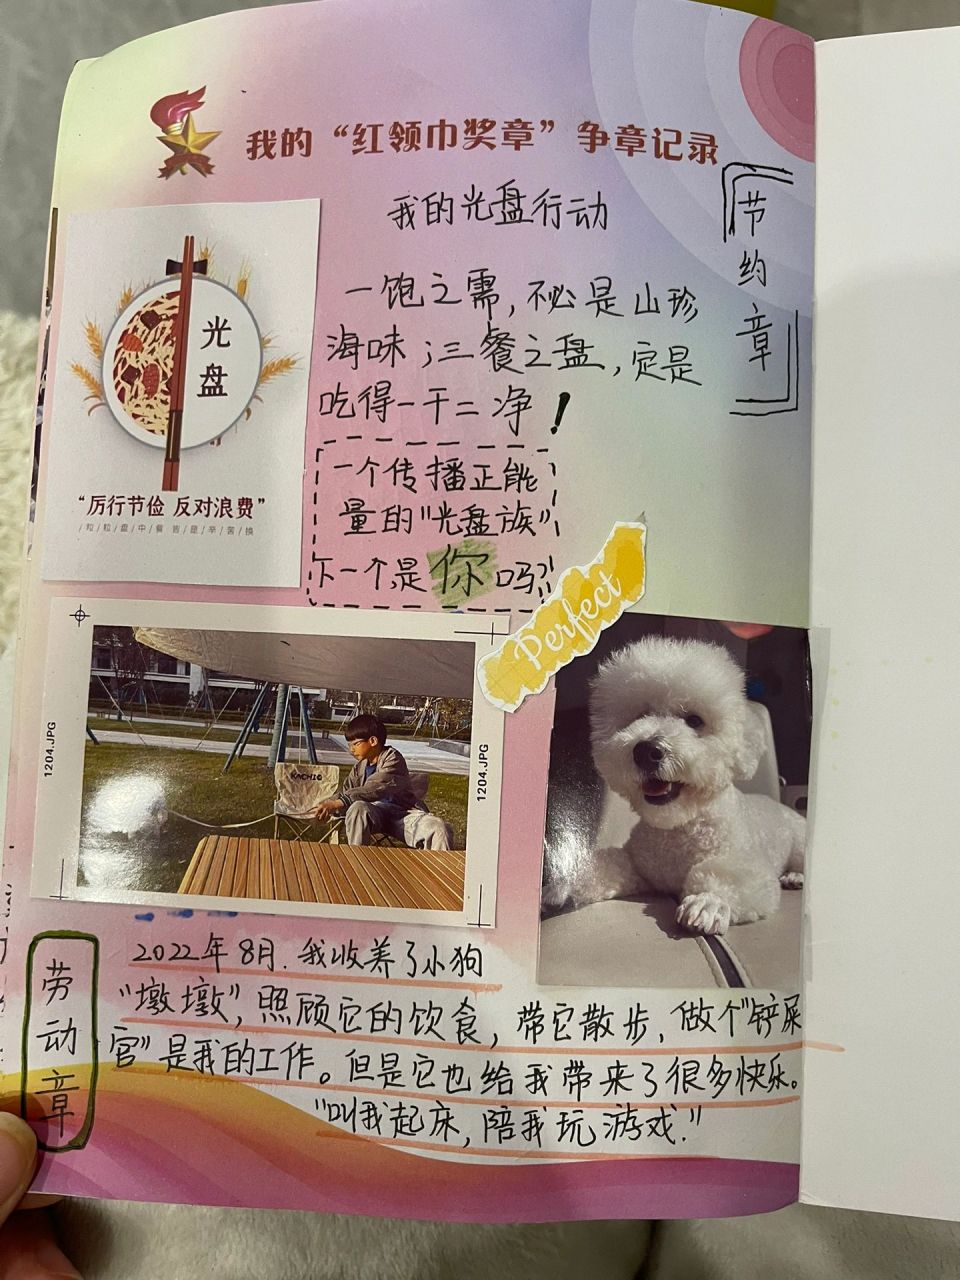 我的“红领巾奖章”争章记录
节约章
我的光盘行动
光盘
“厉行节俭 反对浪费”
/粒/粒/盘/中/餐 皆/是/辛/苦/换
一饱之需,不必是山珍
海味;三餐之盘,定是
吃得一干二净!
一个传播正能
量的"光盘族",
下一个,是你吗?!
Perfect
1204.JPG
KACHIG
1204.JPG
劳动章
2022年8月.我收养了小狗
"墩墩",照顾它的饮食,带它散步,做个"铲屎
官"是我的工作。但是它也给我带来了很多快乐。
"叫我起床,陪我玩游戏."